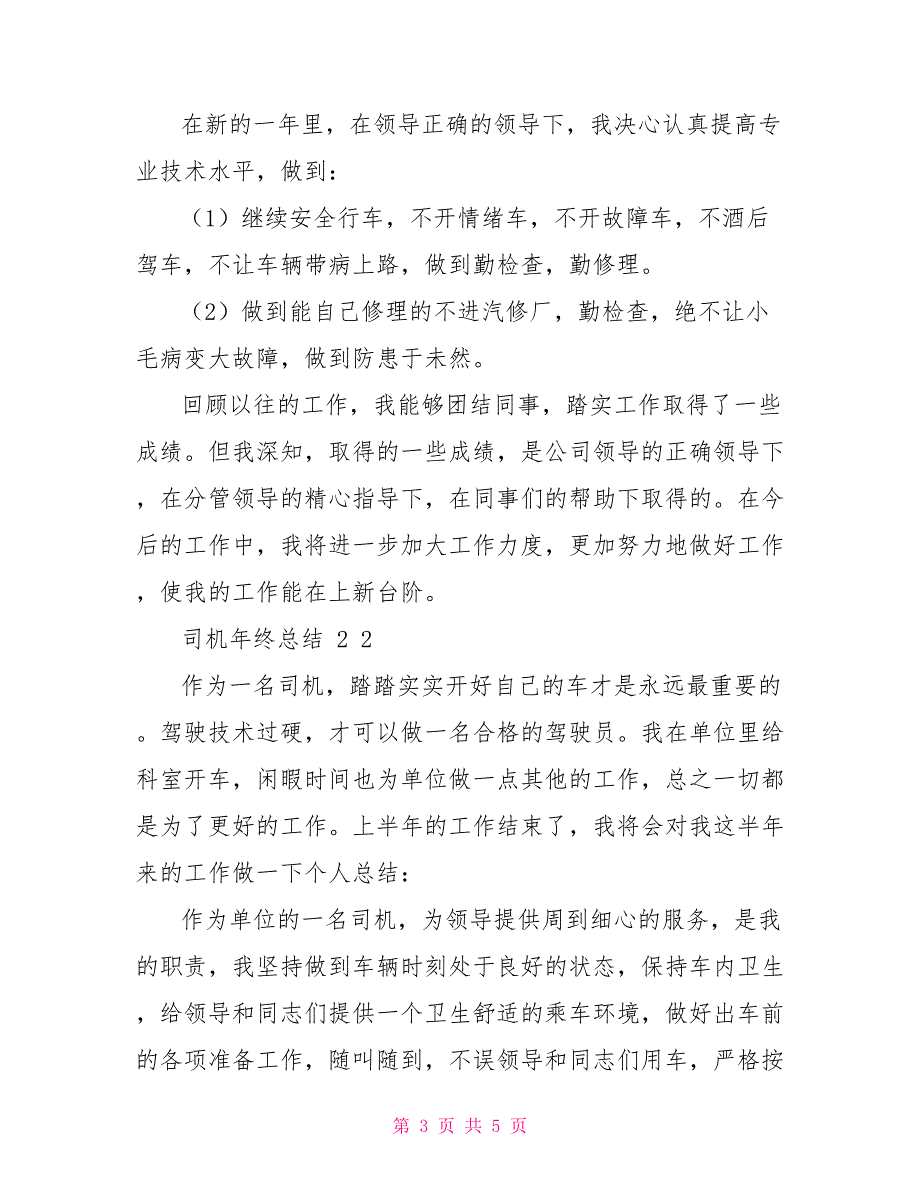 在新的一年里，在领导正确的领导下，我决心认真提高专
业技术水平，做到：
（1）继续安全行车，不开情绪车，不开故障车，不酒后
驾车，不让车辆带病上路，做到勤检查，勤修理。
（2）做到能自己修理的不进汽修厂，勤检查，绝不让小
毛病变大故障，做到防患于未然。
回顾以往的工作，我能够团结同事，踏实工作取得了一些
成绩。但我深知，取得的一些成绩，是公司领导的正确领导下
，在分管领导的精心指导下，在同事们的帮助下取得的。在今
后的工作中，我将进一步加大工作力度，更加努力地做好工作
，使我的工作能在上新台阶。
司机年终总结 22
作为一名司机，踏踏实实开好自己的车才是永远最重要的
。驾驶技术过硬，才可以做一名合格的驾驶员。我在单位里给
科室开车，闲暇时间也为单位做一点其他的工作，总之一切都
是为了更好的工作。上半年的工作结束了，我将会对我这半年
来的工作做一下个人总结：
作为单位的一名司机，为领导提供周到细心的服务，是我
的职责，我坚持做到车辆时刻处于良好的状态，保持车内卫生
，给领导和同志们提供一个卫生舒适的乘车环境，做好出车前
的各项准备工作，随叫随到，不误领导和同志们用车，严格按
第 3 页 共 5 页